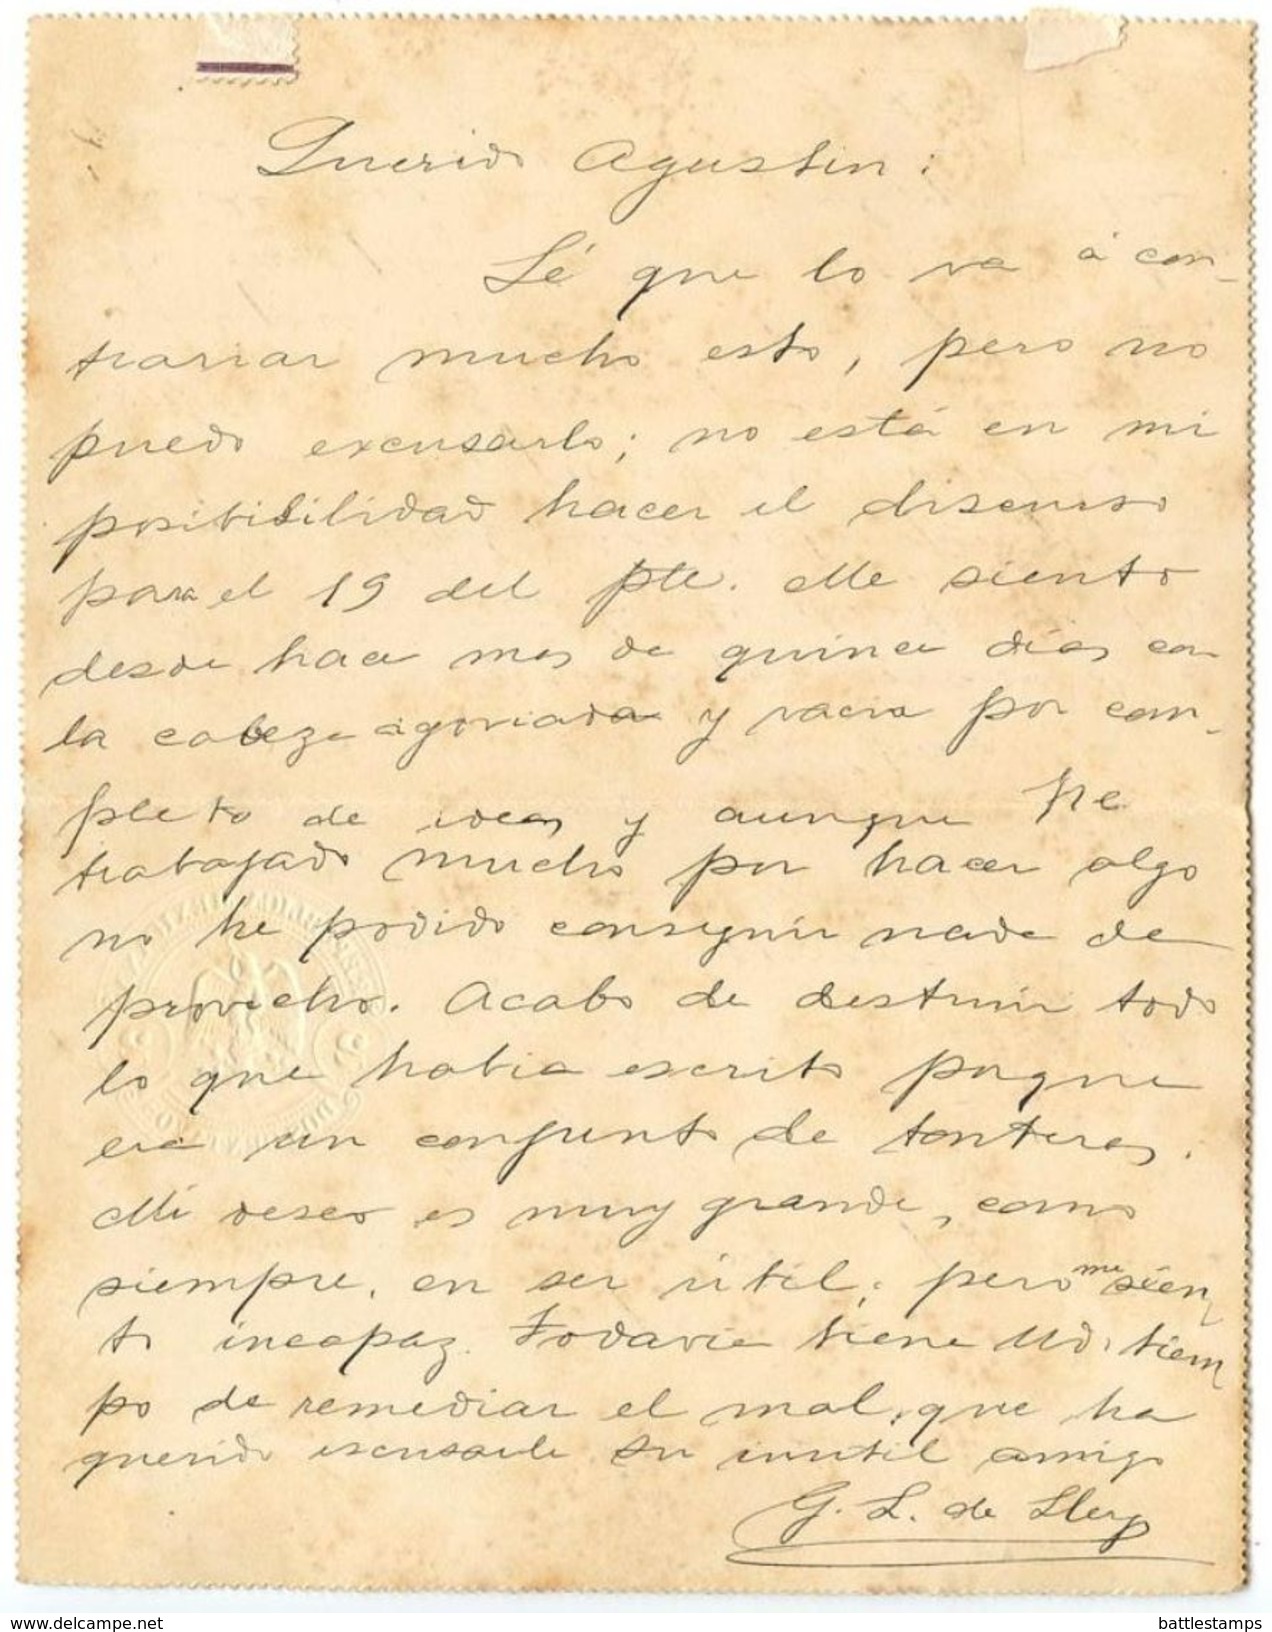 Querido Agustin:
Sé que lo va á con-
trariar mucho esto, pero no
puedo excusarlo; no está en mi
posibilidad hacer el discurso
para el 19 del pte. Me siento
desde hace mas de quince días con
la cabeza agoviada y vacia por com-
pleto de ideas y aunque he
trabajado mucho por hacer algo
no he podido conseguir nada de
provecho. Acabo de destruir todo
lo que habia escrito porque
era un conjunto de tonteras.
Mi deseo es muy grande, como
siempre, en ser útil; pero me sien
to incapaz. Todavia tiene Ud. tiem
po de remediar el mal, que ha
querido escusarle su inutil amigo
G. L. de Llergo
delcampe.net
battlestamps